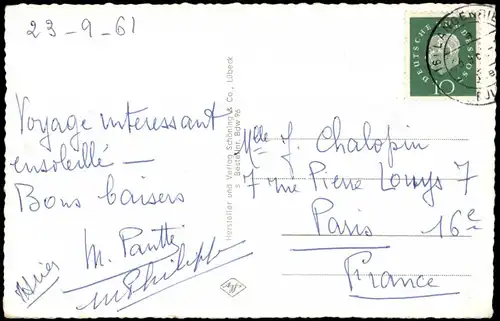 23-9-61
Voyage interessant
ensoleillé —
Bons baisers
M.
Philippe
Hersteller und Verlag Schöning & Co., Lübeck
Bestellnr. Büw 96
DEUTSCHE BUNDESPOST
10
Melle J. Chalopin
7 rue Pierre Louys 7
Paris 16e
France